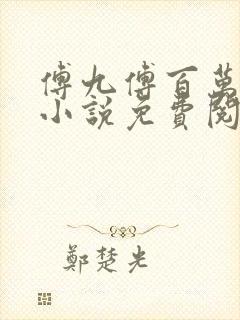 傅九傅百萬
小說免費閱
鄭楚光